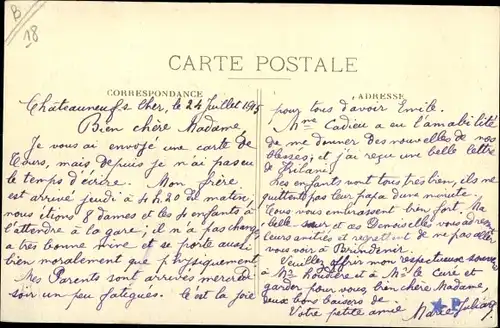 B
18
CARTE POSTALE
CORRESPONDANCE
ADRESSE
Châteauneuf s Cher, le 24 Juillet 1915
Bien chère Madame,
Je vous ai envoyé une carte de
Tours, mais depuis je n'ai pas eu
le temps d'écrire. Mon frère
est arrivé jeudi à 4h.20 du matin,
nous étions 8 dames et les 4 enfants à
l'attendre à la gare; il n'a pas changé
a très bonne mine et se porte aussi
bien moralement que physiquement
Mes Parents sont arrivés mercredi
soir un peu fatigués. C'est la joie
pour tous d'avoir Emile.
Mme Cadieu a eu l'amabilité
de me donner des nouvelles de nos
blessés; et j'ai reçu une belle lettre
de
Les enfants vont tous très bien, ils ne
quittent pas leur papa d'une minute.
Tous vous embrassent bien fort. Ma
belle sœur et ses Demoiselles vous adressent
leurs amitiés et regrettent de ne pas aller
vous voir à
Veuillez offrir mon respectueux
à Me et à Mr le Curé et
garder pour vous bien chère Madame,
deux bons baisers de
Votre petite amie Marie